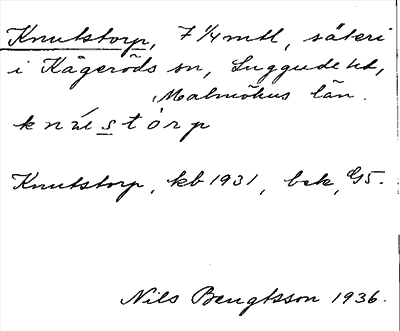 Knutstorp, 7 1/4 mtl, säteri
i Kågeröds sn, Luggude hd,
Malmöhus län.
knústórp
Knutstorp, kb 1931, bek, G5.
Nils Bengtsson 1936.